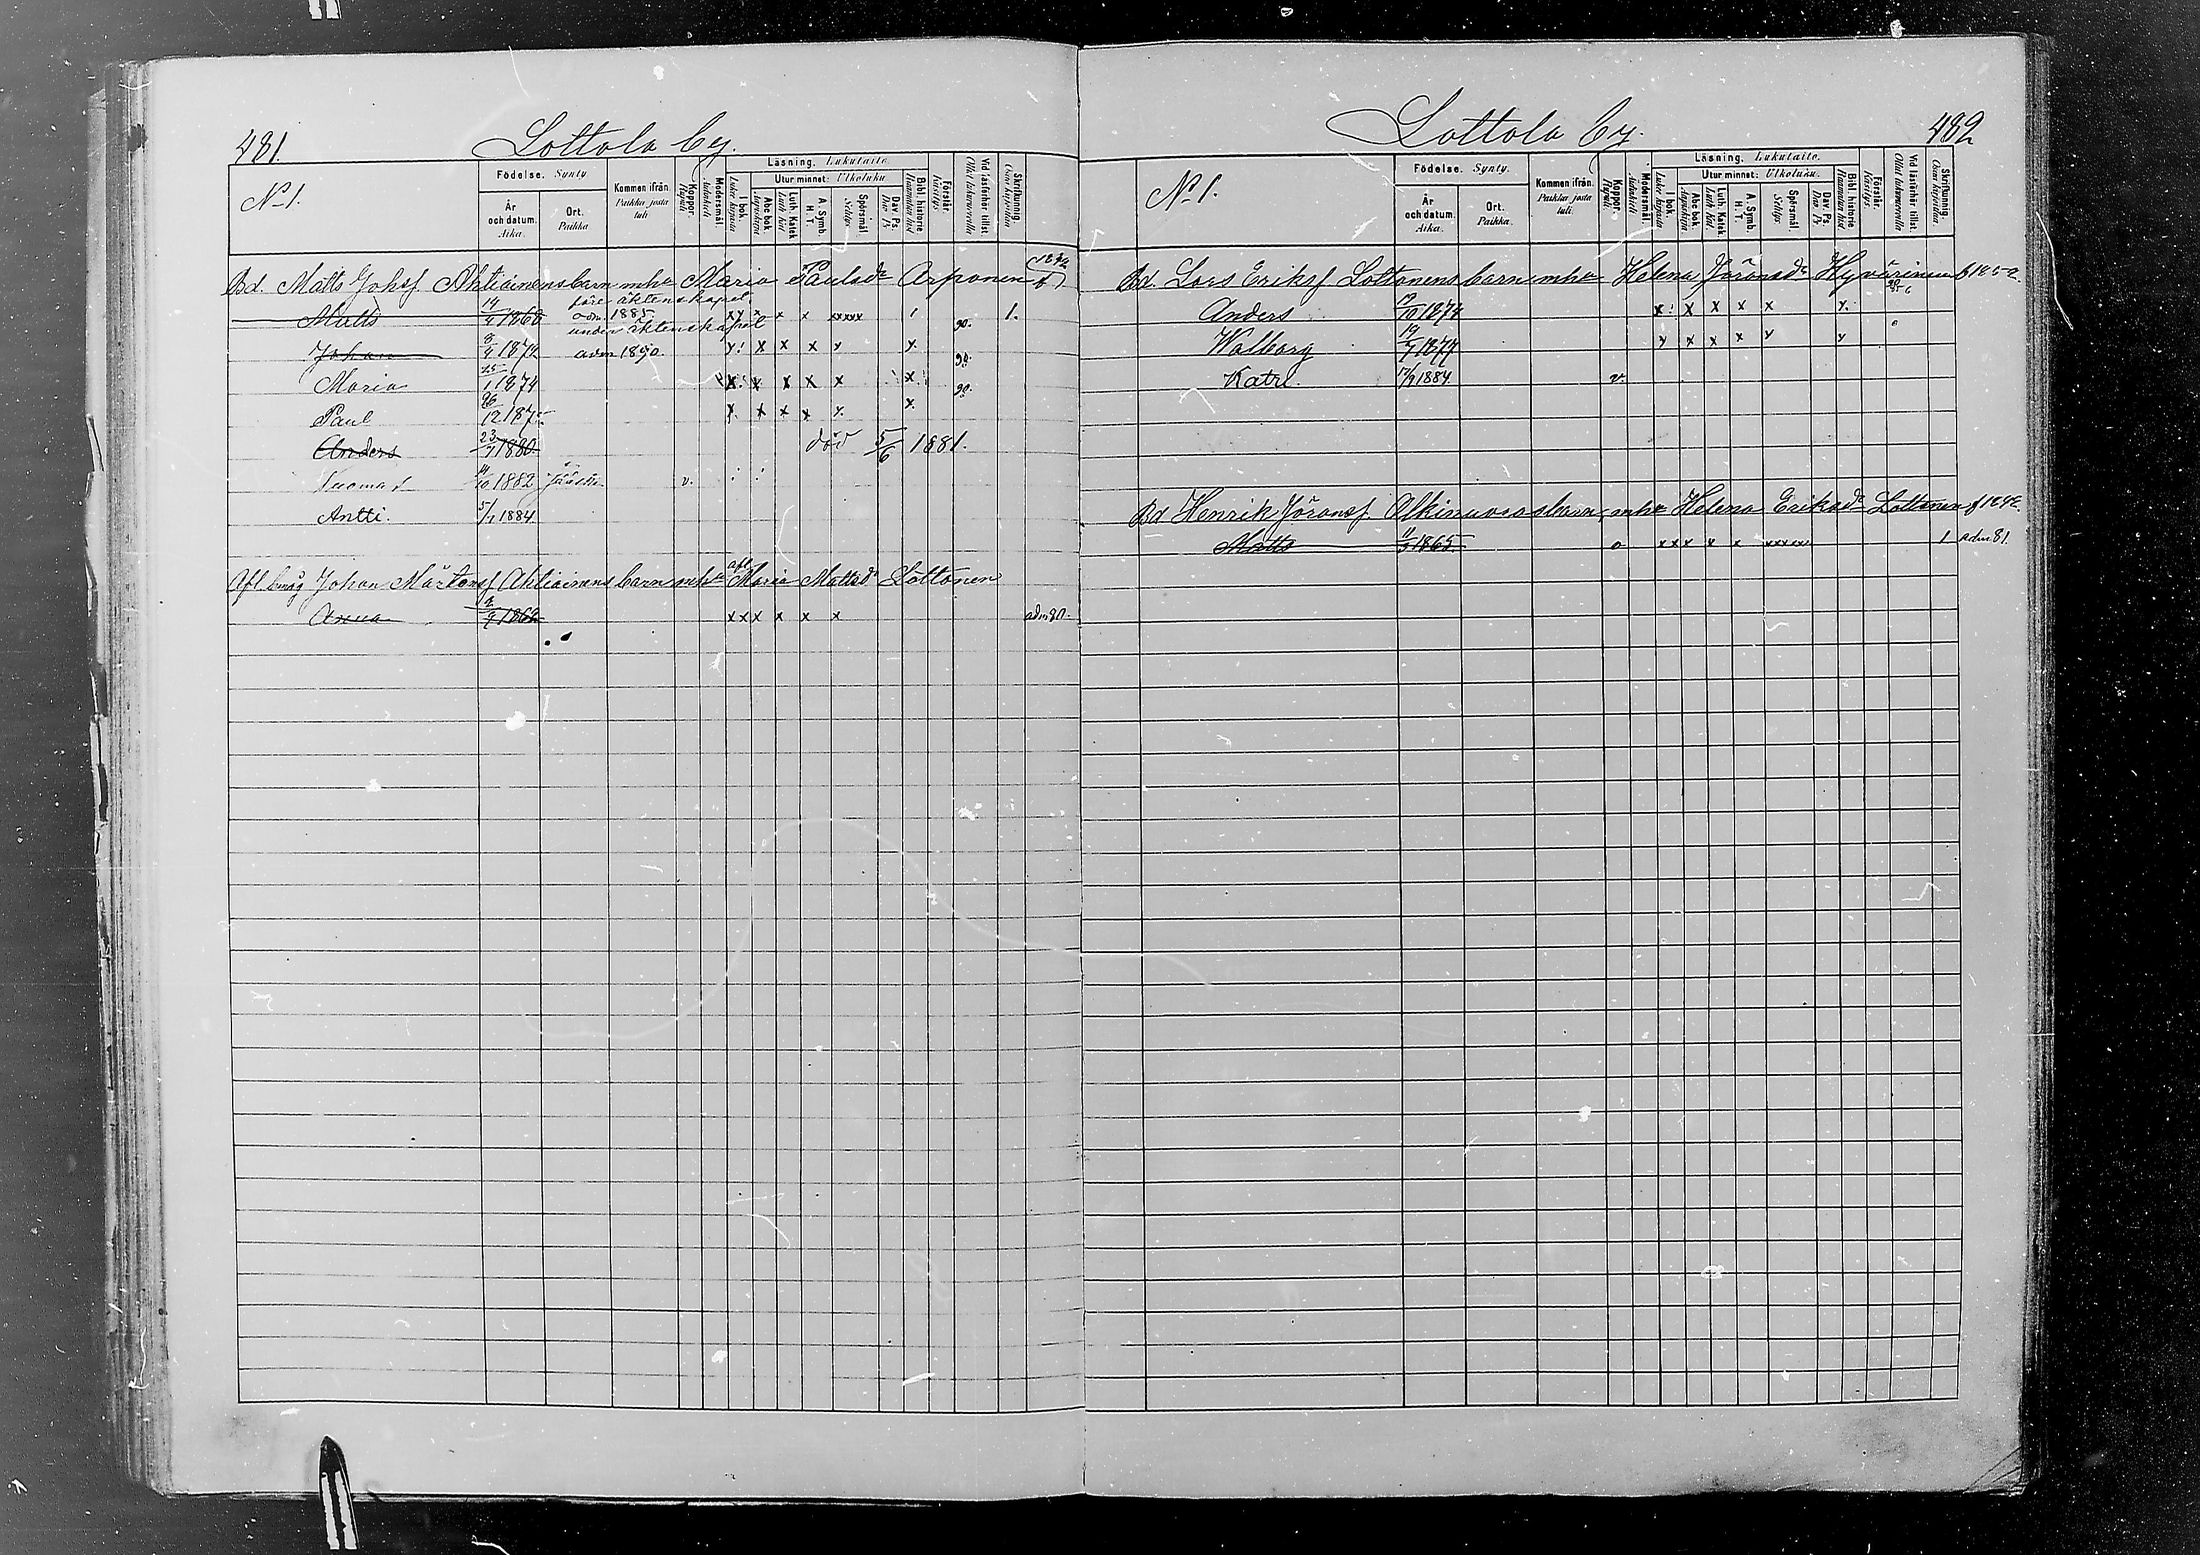 481.
Lottola by.
N 1.
Födelse. Synty.
År och datum. Aika.
Ort. Paikka
Kommen ifrån. Paikka, josta tuli.
Koppor. Rupuli
Modersmål. Äidinkieli
Läsning. Lukutaito.
I bok. Lukee kirjasta
Utur minnet: Ulkoluku
Abc bok. Aapiskirja
Luth. Katek.
A. Symb. H. T.
Spörsmål. Selitys
Dav. Ps. Dav. Ps.
Bibl. historie
Förstår. Käsitys
Vid läsförhör tillst. Ollut lukukinkereillä
Skriftunning.
Bd. Matts Johsf Ahtiainens barn mha Maria Paulsdr Arponen
Matts 1868 före äktenskapet adm. 1885 x y x x x xxxxx 1 1.
under äktenskapet
Johan 8/4 1872 adm 1890. y! x x x y y. 90.
Maria 25/1 1874 x x x x x x 90.
Paul 26/12 187 x x x x y. x. 90.
Anders 23/7 1880 död 5/6 1881.
Tuomas 1882 v.
Antti. 5/7 1884
Afl. Johan Mårtensf Ahtiainens barn mha afl Maria Mattsdr Lottonen
Anna 1862 xxx x x x adm 80.
Lottola by.
482
N 1.
Födelse. Synty.
År och datum. Aika.
Ort. Paikka.
Kommen ifrån. Paikka josta tuli.
Koppor. Rupuli.
Modersmål. Äidinkieli
Läsning. Lukutaito.
I bok. Lukee kirjasta
Utur minnet: Ulkoluku.
Abc bok. Aapiskirja
Luth. Katek.
A. Symb. H. T.
Spörsmål. Selitys.
Dav. Ps. Dav. Ps
Bibl. historie
Förstår. Käsitys.
Vid läsförhör tillst. Ollut lukukinkereillä
Skriftunning.
Bd. Lars Eriksf Lottonens barn mha Helena Jöransdr Hyvärinen f 1852.
Anders 1874 x! x x x x y.
Walborg 19/7 1877 y x x x y y
Katri. 17/9 1884. v.
Bd Henrik Jöransf Olkinuoras barn, mha Helena Eriksdr Lottonen f 1842.
Matts 1865 o xxx x x xxxxx 1 adm 81.